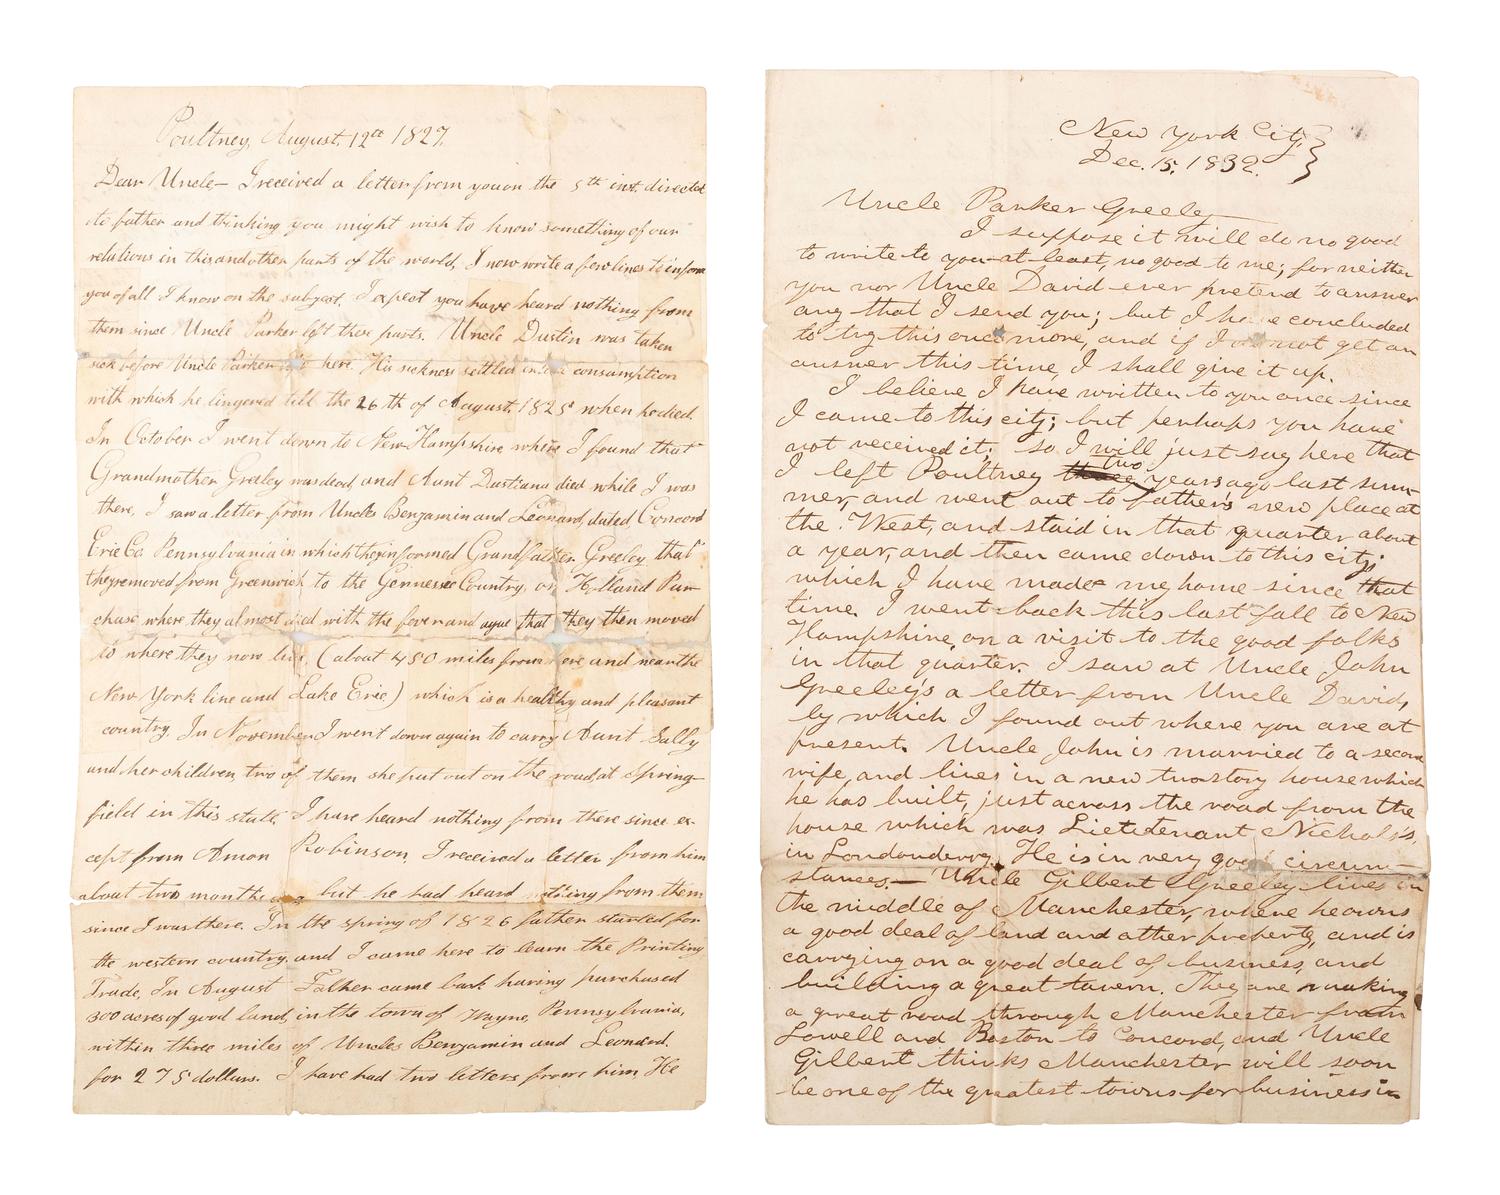 Poultney, August, 12th 1827.
Dear Uncle— I received a letter from you on the 5th inst. directed
to father and thinking you might wish to know something of our
relations in this and other parts of the world, I now write a few lines to inform
you of all I know on the subject. I expect you have heard nothing from
them since Uncle Parker left these parts. Uncle Dustin was taken
sick before Uncle Parker left here. His sickness settled in consumption
with which he lingered till the 26th of August, 1825 when he died.
In October I went down to New Hampshire where I found that
Grandmother Greeley was dead, and Aunt Dustiana died while I was
there, I saw a letter from Uncles Benjamin and Leonard, dated Concord
Erie Co. Pennsylvania in which they informed Grandfather Greeley, that
they removed from Greenwich to the Gennesee Country, or Holland Pur-
chase where they almost died with the fever and ague that they then moved
to where they now live, (about 450 miles from here and near the
New York line and Lake Erie) which is a healthy and pleasant
country. In November I went down again to carry Aunt Sally
and her children, two of them she put out on the road, at Spring-
field in this state. I have heard nothing from there since ex-
cept from Amon Robinson. I received a letter from him
about two months ago but he had heard nothing from them
since I was there. In the spring of 1826 father started for
the western country, and I came here to learn the Printing
Trade, In August Father came back having purchased
300 acres of good land, in the town of Wayne, Pennsylvania,
within three miles of Uncles Benjamin and Leonard.
for 275 dollars. I have had two letters from him. He
New York City,
Dec. 15, 1832.
Uncle Parker Greeley
I suppose it will do no good
to write to you—at least, no good to me; for neither
you nor Uncle David ever pretend to answer
any that I send you; but I have concluded
to try this once more, and if I do not get an
answer this time, I shall give it up.
I believe I have written to you once since
I came to this city; but perhaps you have
not received it; so I will just say here that
I left Poultney two years ago last sum-
mer, and went out to father's new place at
the West, and staid in that quarter about
a year, and then came down to this city,
which I have made my home since that
time. I went back this last fall to New
Hampshire, on a visit to the good folks
in that quarter. I saw at Uncle John
Greeley's a letter from Uncle David,
by which I found out where you are at
present. Uncle John is married to a second
wife, and lives in a new two story house which
he has built, just across the road from the
house which was Lieutenant Nichols's,
in Londonderry. He is in very good circum-
stances.— Uncle Gilbert Greeley lives in
the middle of Manchester, where he owns
a good deal of land and other property, and is
carrying on a good deal of business, and
building a great tavern. They are making
a great road through Manchester from
Lowell and Boston to Concord, and Uncle
Gilbert thinks Manchester will soon
be one of the greatest towns for business in